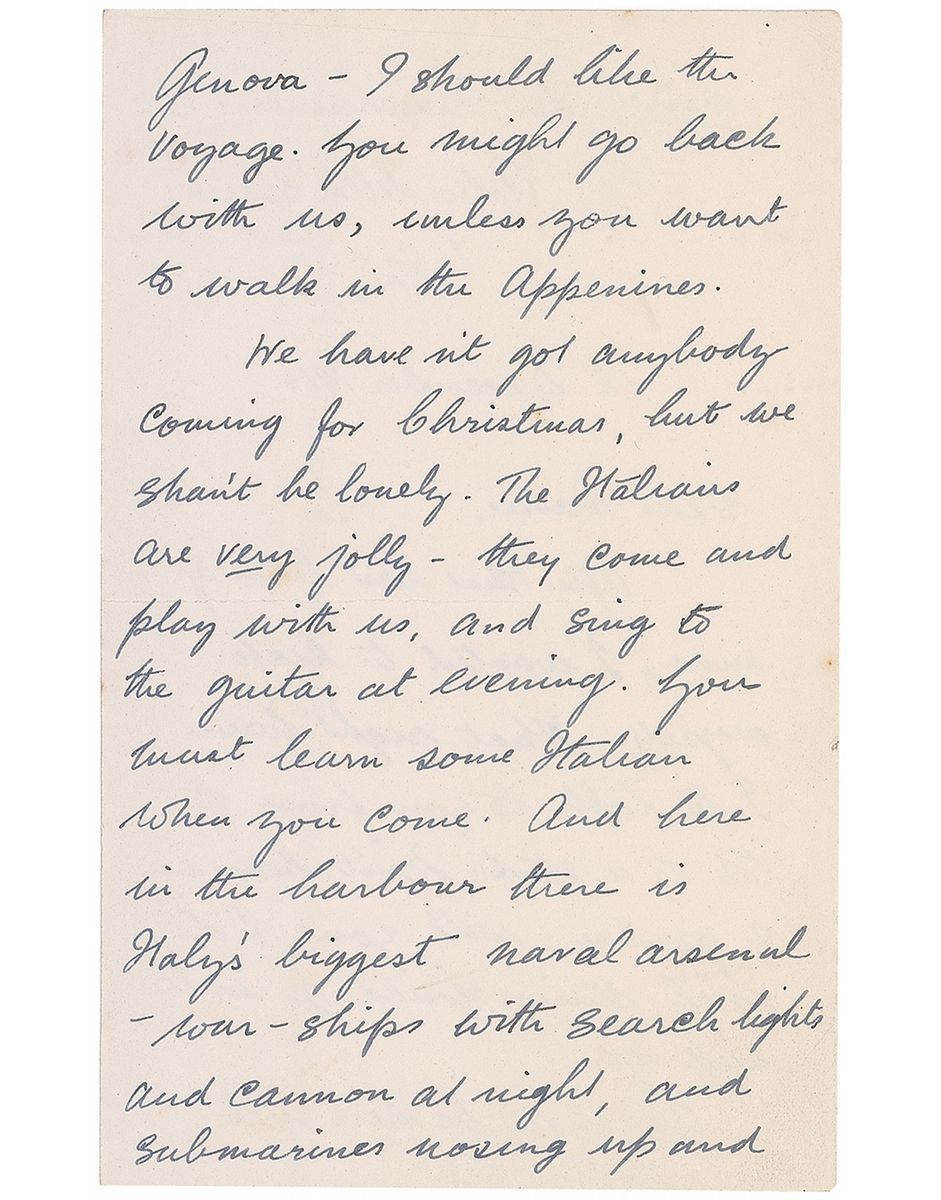 Genova – I should like the
voyage. You might go back
with us, unless you want
to walk in the Appenines.
We have n't got anybody
coming for Christmas, but we
shan't be lonely. The Italians
are very jolly – they come and
play with us, and sing to
the guitar at evening. You
must learn some Italian
when you come. And here
in the harbour there is
Italy's biggest naval arsenal
– war-ships with search lights
and cannon at night, and
submarines nosing up and